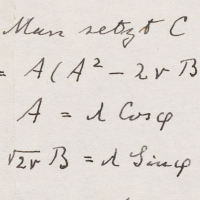 Man setzt C
= A(A² - 2v B
A = λ Cosφ
√2v B = λ Sinφ